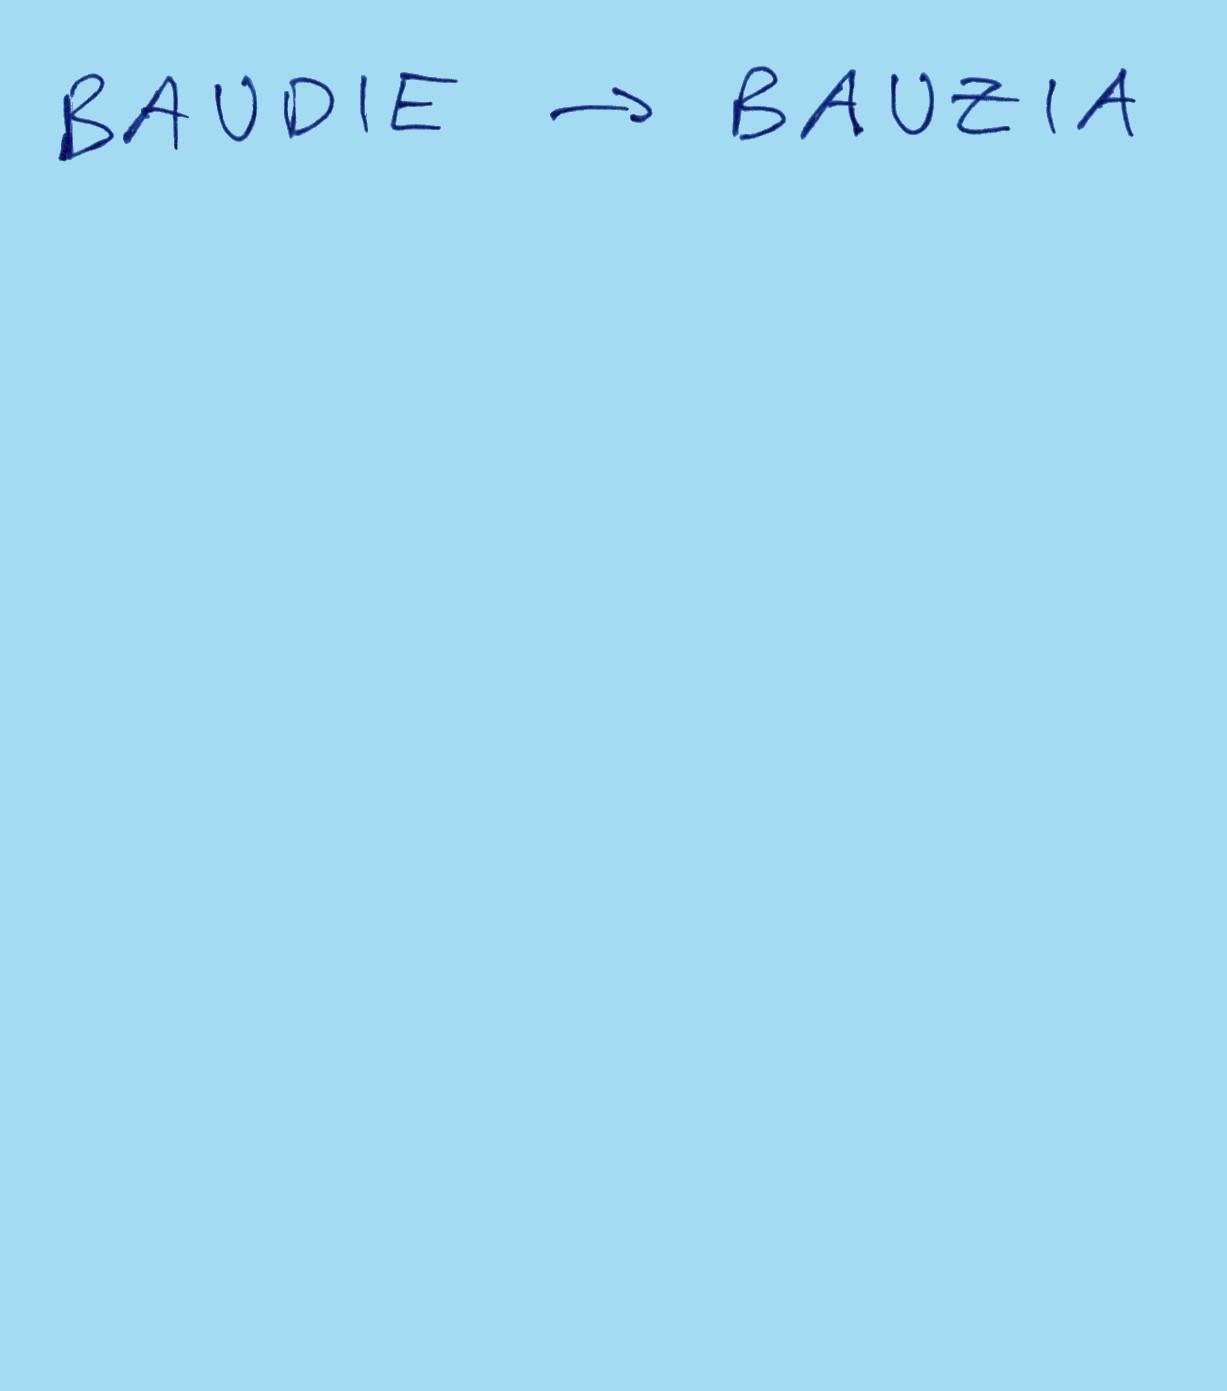 BAUDIE → BAUZIA